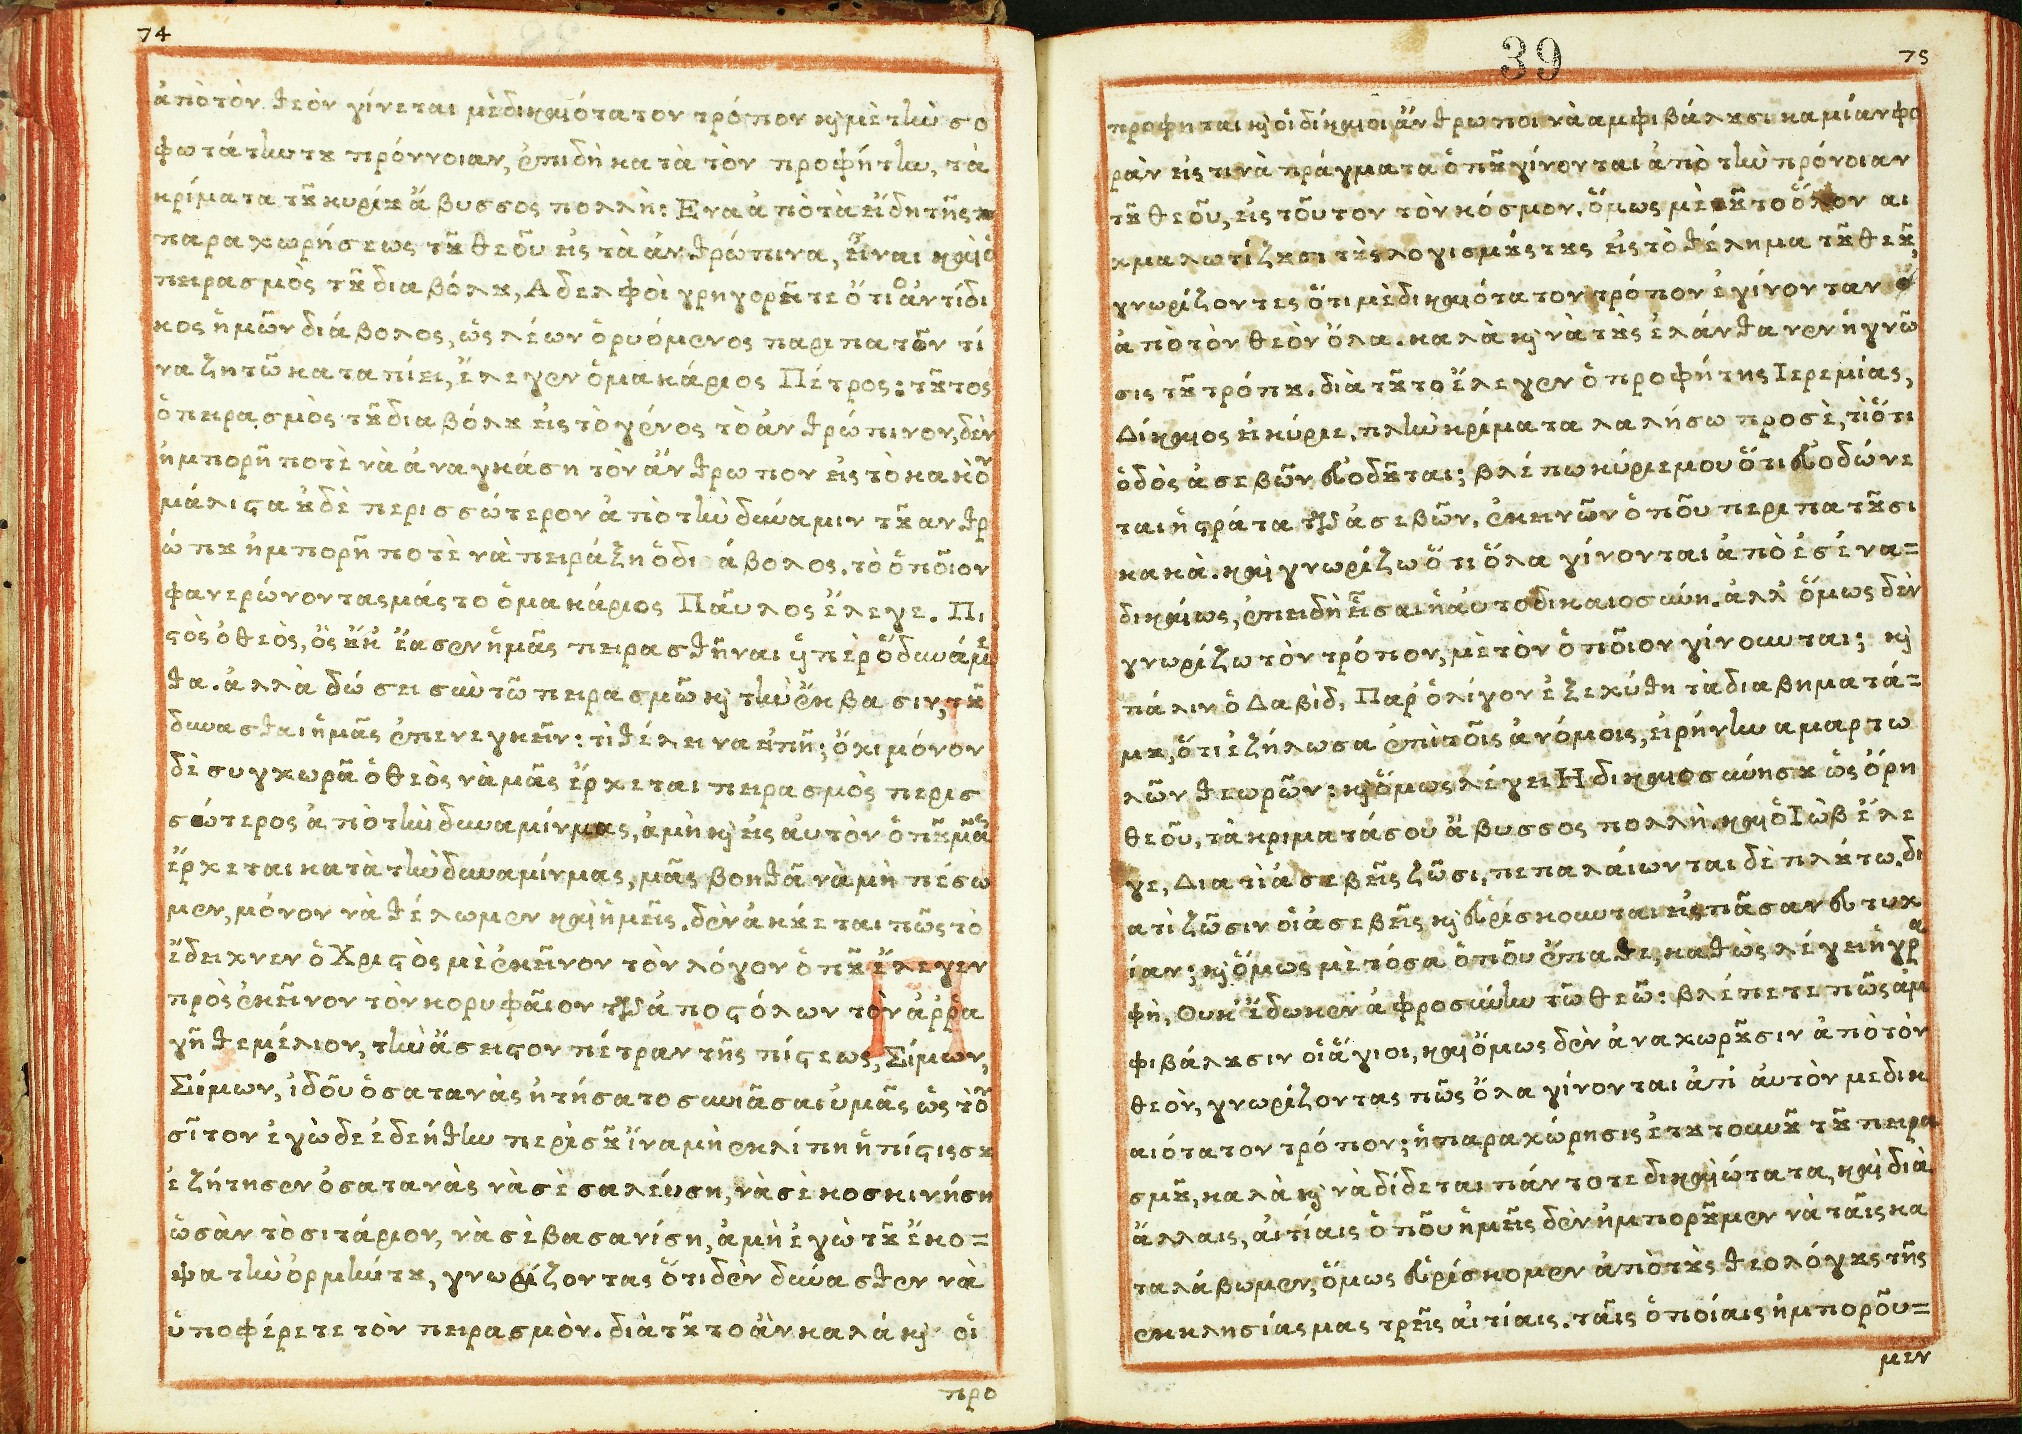 74
ἀπὸ τὸν θεὸν γίνεται μὲ δικαιότατον τρόπον καὶ μὲ τὴν σο
φωτάτην του πρόνοιαν, ἐπιδὴ κατὰ τὸν προφήτην, τὰ
κρίματα τοῦ κυρίου ἄβυσσος πολλὴ: Ενα ἀπὸ τὰ εἴδη τῆς
παραχωρήσεως τοῦ θεοῦ εἰς τὰ ἀνθρώπινα, εἶναι καὶ ὁ
πειρασμὸς τοῦ διαβόλου, Αδελφοὶ γρηγορεῖτε ὅτι ὁ ἀντίδι
κος ἡμῶν διάβολος, ὡς λέων ὀρυόμενος περιπατῶν τί
να ζητῶ καταπίει, ἔλεγεν ὁ μακάριος Πέτρος: τοῦτος
ὁ πειρασμὸς τοῦ διαβόλου εἰς τὸ γένος τὸ ἀνθρώπινον, δὲν
ἠμπορῆ ποτὲ νὰ ἀναγκάση τὸν ἄνθρωπον εἰς τὸ κακὸν
μάλιστα οὐδὲ περισσώτερον ἀπὸ τὴν δύναμιν τοῦ ανθρ
ώπου ἠμπορῆ ποτὲ νὰ πειράξη ὁ διάβολος. τὸ ὁποῖον
φανερώνοντας μάς το ὁ μακάριος Παῦλος ἔλεγε. Πι
στὸς ὁ θεὸς, ὃς οὐκ ἔασεν ἡμᾶς πειρασθῆναι ὑπὲρ ὃ δυνάμε
θα. ἀλλὰ δώσει σὺν τῶ πειρασμῶ καὶ τὴν ἔκβασιν, τοῦ
δύνασθαι ἡμᾶς ἐπενεγκεῖν: τὶ θέλει να εἰπῆ; ὄχι μόνον
δὲ συγχωρᾶ ὁ θεὸς νὰ μᾶς ἔρχεται πειρασμὸς περισ
σώτερος ἀπὸ τὴν δυναμίν μας, ἀμὴ καὶ εἰς αὐτὸν ὁποῦ μᾶς
ἔρχεται κατὰ τὴν δυναμίν μας, μᾶς βοηθᾶ νὰ μὴ πέσω
μεν, μόνον νὰ θέλωμεν καὶ ἡμεῖς. δὲν ἀκούεται πῶς τὸ
ἔδειχνεν ὁ Χριστὸς μὲ ἐκεῖνον τὸν λόγον ὁποῦ ἔλεγεν
πρὸς ἐκεῖνον τὸν κορυφαῖον τῶν ἀποστόλων τὸν ἀῤῥα
γῆ θεμέλιον, τὴν ἄσειστον πέτραν τῆς πίστεως, Σίμων,
Σίμων, ἰδοῦ ὁ σατανὰς ἠτήσατο συνιᾶσαι ὑμᾶς ὡς τὸν
σῖτον ἐγὼ δε ἐδεήθην περὶ σοῦ ἵνα μὴ ἐκλίπη ἡ πίστις σου
ἐζήτησεν ὁ σατανὰς νὰ σὲ σαλεύση, νὰ σὲ κοσκινήση
ὡσὰν τὸ σιτάριον, νὰ σὲ βασανίση, ἀμὴ ἐγὼ τοῦ ἔκο=
ψα τὴν ὁρμήν του, γνωρίζοντας ὅτι δὲν δύνασθεν νὰ
ὑποφέρετε τὸν πειρασμὸν. διὰ τοῦτο ἂν καλά καὶ οἱ
προ
39
75
προφηται καὶ οἱ δίκαιοι ἄνθρωποι νὰ αμφιβάλουσι καμίαν φο
ρὰν εἰς τινὰ πράγματα ὁποῦ γίνονται ἀπὸ τὴν πρόνοιαν
τοῦ θεοῦ, εἰς τοῦτον τὸν κόσμον. ὅμως μὲ οὗτο ὅλον αι
χμαλωτίζουσι τοὺς λογισμούς τους εἰς τὸ θέλημα τοῦ θεοῦ,
γνωρίζοντες ὅτι μὲ δικαιότατον τρόπον ἐγίνονταν
ἀπὸ τὸν θεὸν ὅλα. καλὰ καὶ νὰ τοὺς ἐλάνθανεν ἡ γνῶ
σις τοῦ τρόπου. διὰ τοῦτο ἔλεγεν ὁ προφήτης Ιερεμίας,
Δίκαιος εἶ κύριε. πλὴν κρίματα λαλήσω προσὲ, τὶ ὅτι
ὁδὸς ἀσεβῶν εὐοδοῦται; βλέπω κύριε μου ὅτι εὐοδώνε
ται ἡ στράτα τῶν ἀσεβῶν. ἐκεινῶν ὁποῦ περιπατοῦσι
κακὰ. καὶ γνωρίζω ὅτι ὅλα γίνονται ἀπὸ ἐσένα=
δικαίως, ἐπειδὴ εἶσαι ἡ αὐτοδικαιοσύνη. ἀλλ' ὅμως δὲν
γνωρίζω τὸν τρόπον, μὲ τὸν ὁποῖον γίνουνται; καὶ
πάλιν ὁ Δαβὶδ, Παρ' ὀλίγον ἐξεχύθη τὰ διαβηματά=
μου, ὅτι ἐζήλωσα ἐπὶ τοῖς ἀνόμοις, εἰρήνην αμαρτω
λῶν θεωρῶν: καὶ ὅμως λέγει Η δικαιοσύνη σου ὡς ὄρη
θεοῦ, τὰ κριματά σου ἄβυσσος πολλὴ. καὶ ὁ Ιὼβ ἔλε
γε, Διατὶ ἀσεβεῖς ζῶσι, πεπαλάιωνται δὲ πλούτω. δι
ατὶ ζῶσιν οἱ ἀσεβεῖς καὶ εὑρίσκουνται εἰς πᾶσαν εὐτυχ
ίαν; καὶ ὅμως μὲ τόσα ὁποῦ ἔπαθε, καθὼς λέγει ἡ γρα
φὴ, Ουκ ἔδωκεν ἀφροσύνην τῶ θεῶ: βλέπετε πῶς ἀμ
φιβάλουσιν οἱ ἅγιοι, καὶ ὅμως δὲν ἀναχωροῦσιν ἀπὸ τὸν
θεὸν, γνωρίζοντας πῶς ὅλα γίνονται ἀπ' αὐτὸν με δικ
αιότατον τρόπον; ἡ παραχώρησις ἐτούτουνοῦ τοῦ πειρα
σμοῦ, καλὰ καὶ νὰ δίδεται πάντοτε δικαιώτατα, καὶ διὰ
ἄλλαις, αἰτίαις ὁποῦ ἡμεῖς δὲν ἠμποροῦμεν νὰ ταῖς κα
ταλάβωμεν, ὅμως εὑρίσκομεν ἀπὸ τοὺς θεολόγους τῆς
ἐκκλησίας μας τρεῖς αἰτίαις. ταῖς ὁποίαις ἠμποροῦ=
μεν